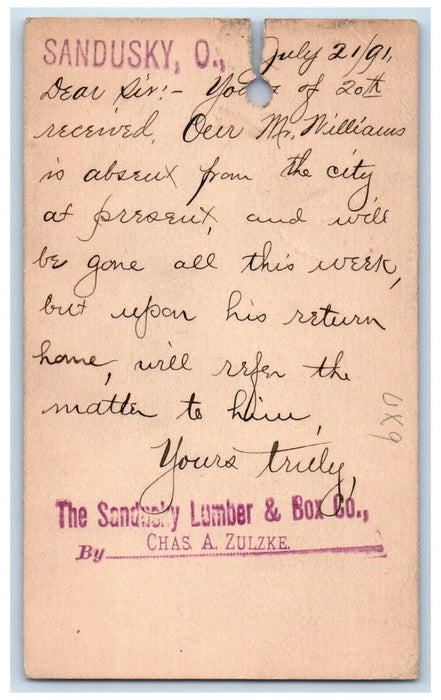 SANDUSKY, O., July 21/91,
Dear Sir:- Yours of 20th
received. Our Mr. Williams
is absent from the city
at present, and will
be gone all this week,
but upon his return
home, will refer the
matter to him,
Yours truly,
The Sandusky Lumber & Box Co.,
By CHAS. A. ZULZKE.
UK9